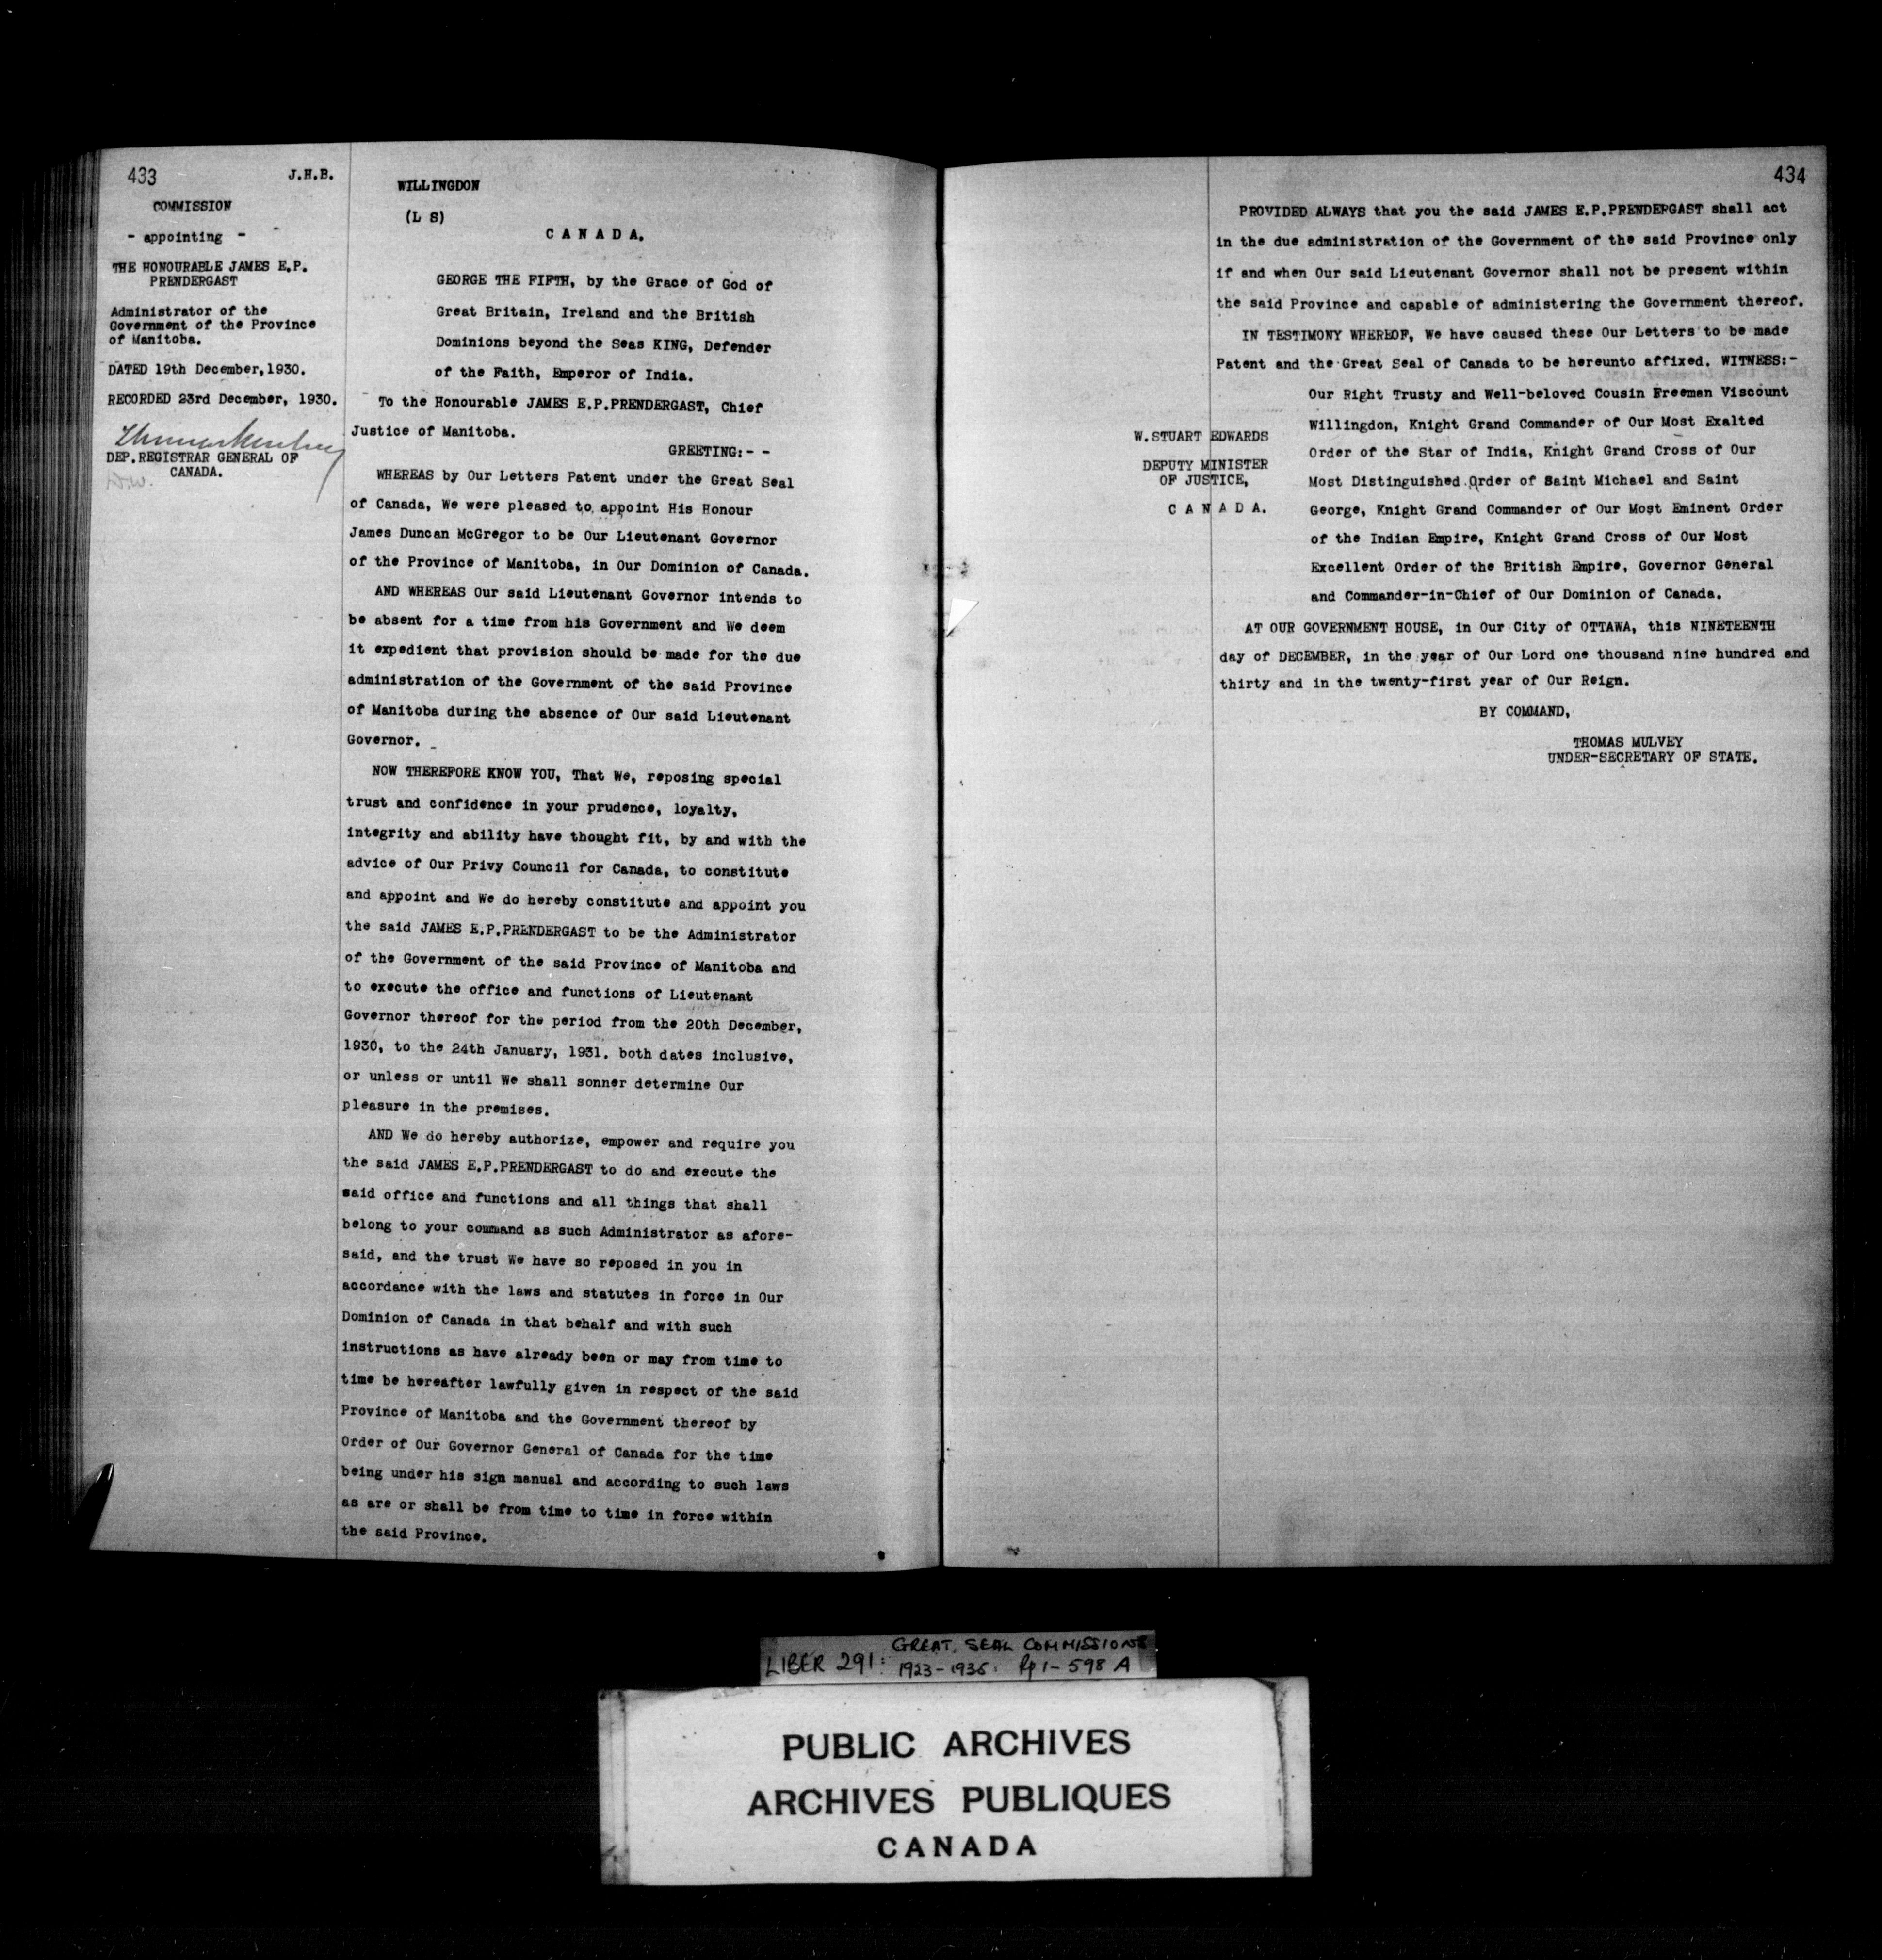 433
J.H.B.
COMMISSION
- appointing -
THE HONOURABLE JAMES E.P.
PRENDERGAST
Administrator of the
Government of the Province
of Manitoba.
DATED 19th December,1930.
RECORDED 23rd December, 1930.
DEP.REGISTRAR GENERAL OF
CANADA.
WILLINGDON
(L S)
C A N A D A.
GEORGE THE FIFTH, by the Grace of God of
Great Britain, Ireland and the British
Dominions beyond the Seas KING, Defender
of the Faith, Emperor of India.
To the Honourable JAMES E.P.PRENDERGAST, Chief
Justice of Manitoba.
GREETING:- -
WHEREAS by Our Letters Patent under the Great Seal
of Canada, We were pleased to appoint His Honour
James Duncan McGregor to be Our Lieutenant Governor
of the Province of Manitoba, in Our Dominion of Canada.
AND WHEREAS Our said Lieutenant Governor intends to
be absent for a time from his Government and We deem
it expedient that provision should be made for the due
administration of the Government of the said Province
of Manitoba during the absence of Our said Lieutenant
Governor.
NOW THEREFORE KNOW YOU, That We, reposing special
trust and confidence in your prudence, loyalty,
integrity and ability have thought fit, by and with the
advice of Our Privy Council for Canada, to constitute
and appoint and We do hereby constitute and appoint you
the said JAMES E.P.PRENDERGAST to be the Administrator
of the Government of the said Province of Manitoba and
to execute the office and functions of Lieutenant
Governor thereof for the period from the 20th December,
1930, to the 24th January, 1931. both dates inclusive,
or unless or until We shall sonner determine Our
pleasure in the premises.
AND We do hereby authorize, empower and require you
the said JAMES E.P.PRENDERGAST to do and execute the
said office and functions and all things that shall
belong to your command as such Administrator as afore-
said, and the trust We have so reposed in you in
accordance with the laws and statutes in force in Our
Dominion of Canada in that behalf and with such
instructions as have already been or may from time to
time be hereafter lawfully given in respect of the said
Province of Manitoba and the Government thereof by
Order of Our Governor General of Canada for the time
being under his sign manual and according to such laws
as are or shall be from time to time in force within
the said Province.
434
PROVIDED ALWAYS that you the said JAMES E.P.PRENDERGAST shall act
in the due administration of the Government of the said Province only
if and when Our said Lieutenant Governor shall not be present within
the said Province and capable of administering the Government thereof.
IN TESTIMONY WHEREOF, We have caused these Our Letters to be made
Patent and the Great Seal of Canada to be hereunto affixed. WITNESS:-
Our Right Trusty and Well-beloved Cousin Freeman Viscount
Willingdon, Knight Grand Commander of Our Most Exalted
Order of the Star of India, Knight Grand Cross of Our
Most Distinguished Order of Saint Michael and Saint
George, Knight Grand Commander of Our Most Eminent Order
of the Indian Empire, Knight Grand Cross of Our Most
Excellent Order of the British Empire, Governor General
and Commander-in-Chief of Our Dominion of Canada.
W.STUART EDWARDS
DEPUTY MINISTER
OF JUSTICE,
C A N A D A.
AT OUR GOVERNMENT HOUSE, in Our City of OTTAWA, this NINETEENTH
day of DECEMBER, in the year of Our Lord one thousand nine hundred and
thirty and in the twenty-first year of Our Reign.
BY COMMAND,
THOMAS MULVEY
UNDER-SECRETARY OF STATE.
LIBER 291: GREAT SEAL COMMISSIONS
1923-1935: Pp 1-598 A
PUBLIC ARCHIVES
ARCHIVES PUBLIQUES
CANADA